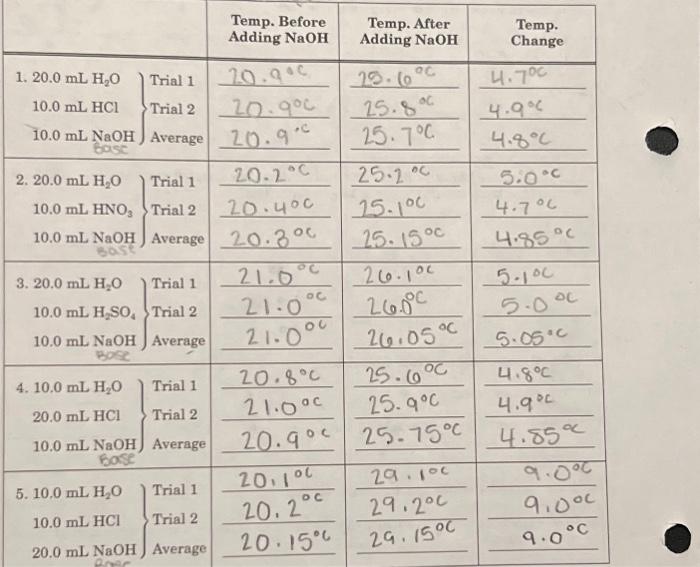 Temp. Before Adding NaOH | Temp. After Adding NaOH | Temp. Change
1. 20.0 mL H₂O Trial 1 20.9°C 25.6°C 4.7°C
10.0 mL HCl Trial 2 20.9°C 25.8°C 4.9°C
10.0 mL NaOH Average 20.9°C 25.7°C 4.8°C
Base
2. 20.0 mL H₂O Trial 1 20.2°C 25.2°C 5.0°C
10.0 mL HNO₃ Trial 2 20.4°C 25.1°C 4.7°C
10.0 mL NaOH Average 20.3°C 25.15°C 4.85°C
Base
3. 20.0 mL H₂O Trial 1 21.0°C 26.1°C 5.1°C
10.0 mL H₂SO₄ Trial 2 21.0°C 26.0°C 5.0°C
10.0 mL NaOH Average 21.0°C 26.05°C 5.05°C
Base
4. 10.0 mL H₂O Trial 1 20.8°C 25.6°C 4.8°C
20.0 mL HCl Trial 2 21.0°C 25.9°C 4.9°C
10.0 mL NaOH Average 20.9°C 25.75°C 4.85°C
Base
5. 10.0 mL H₂O Trial 1 20.1°C 29.1°C 9.0°C
10.0 mL HCl Trial 2 20.2°C 29.2°C 9.0°C
20.0 mL NaOH Average 20.15°C 29.15°C 9.0°C